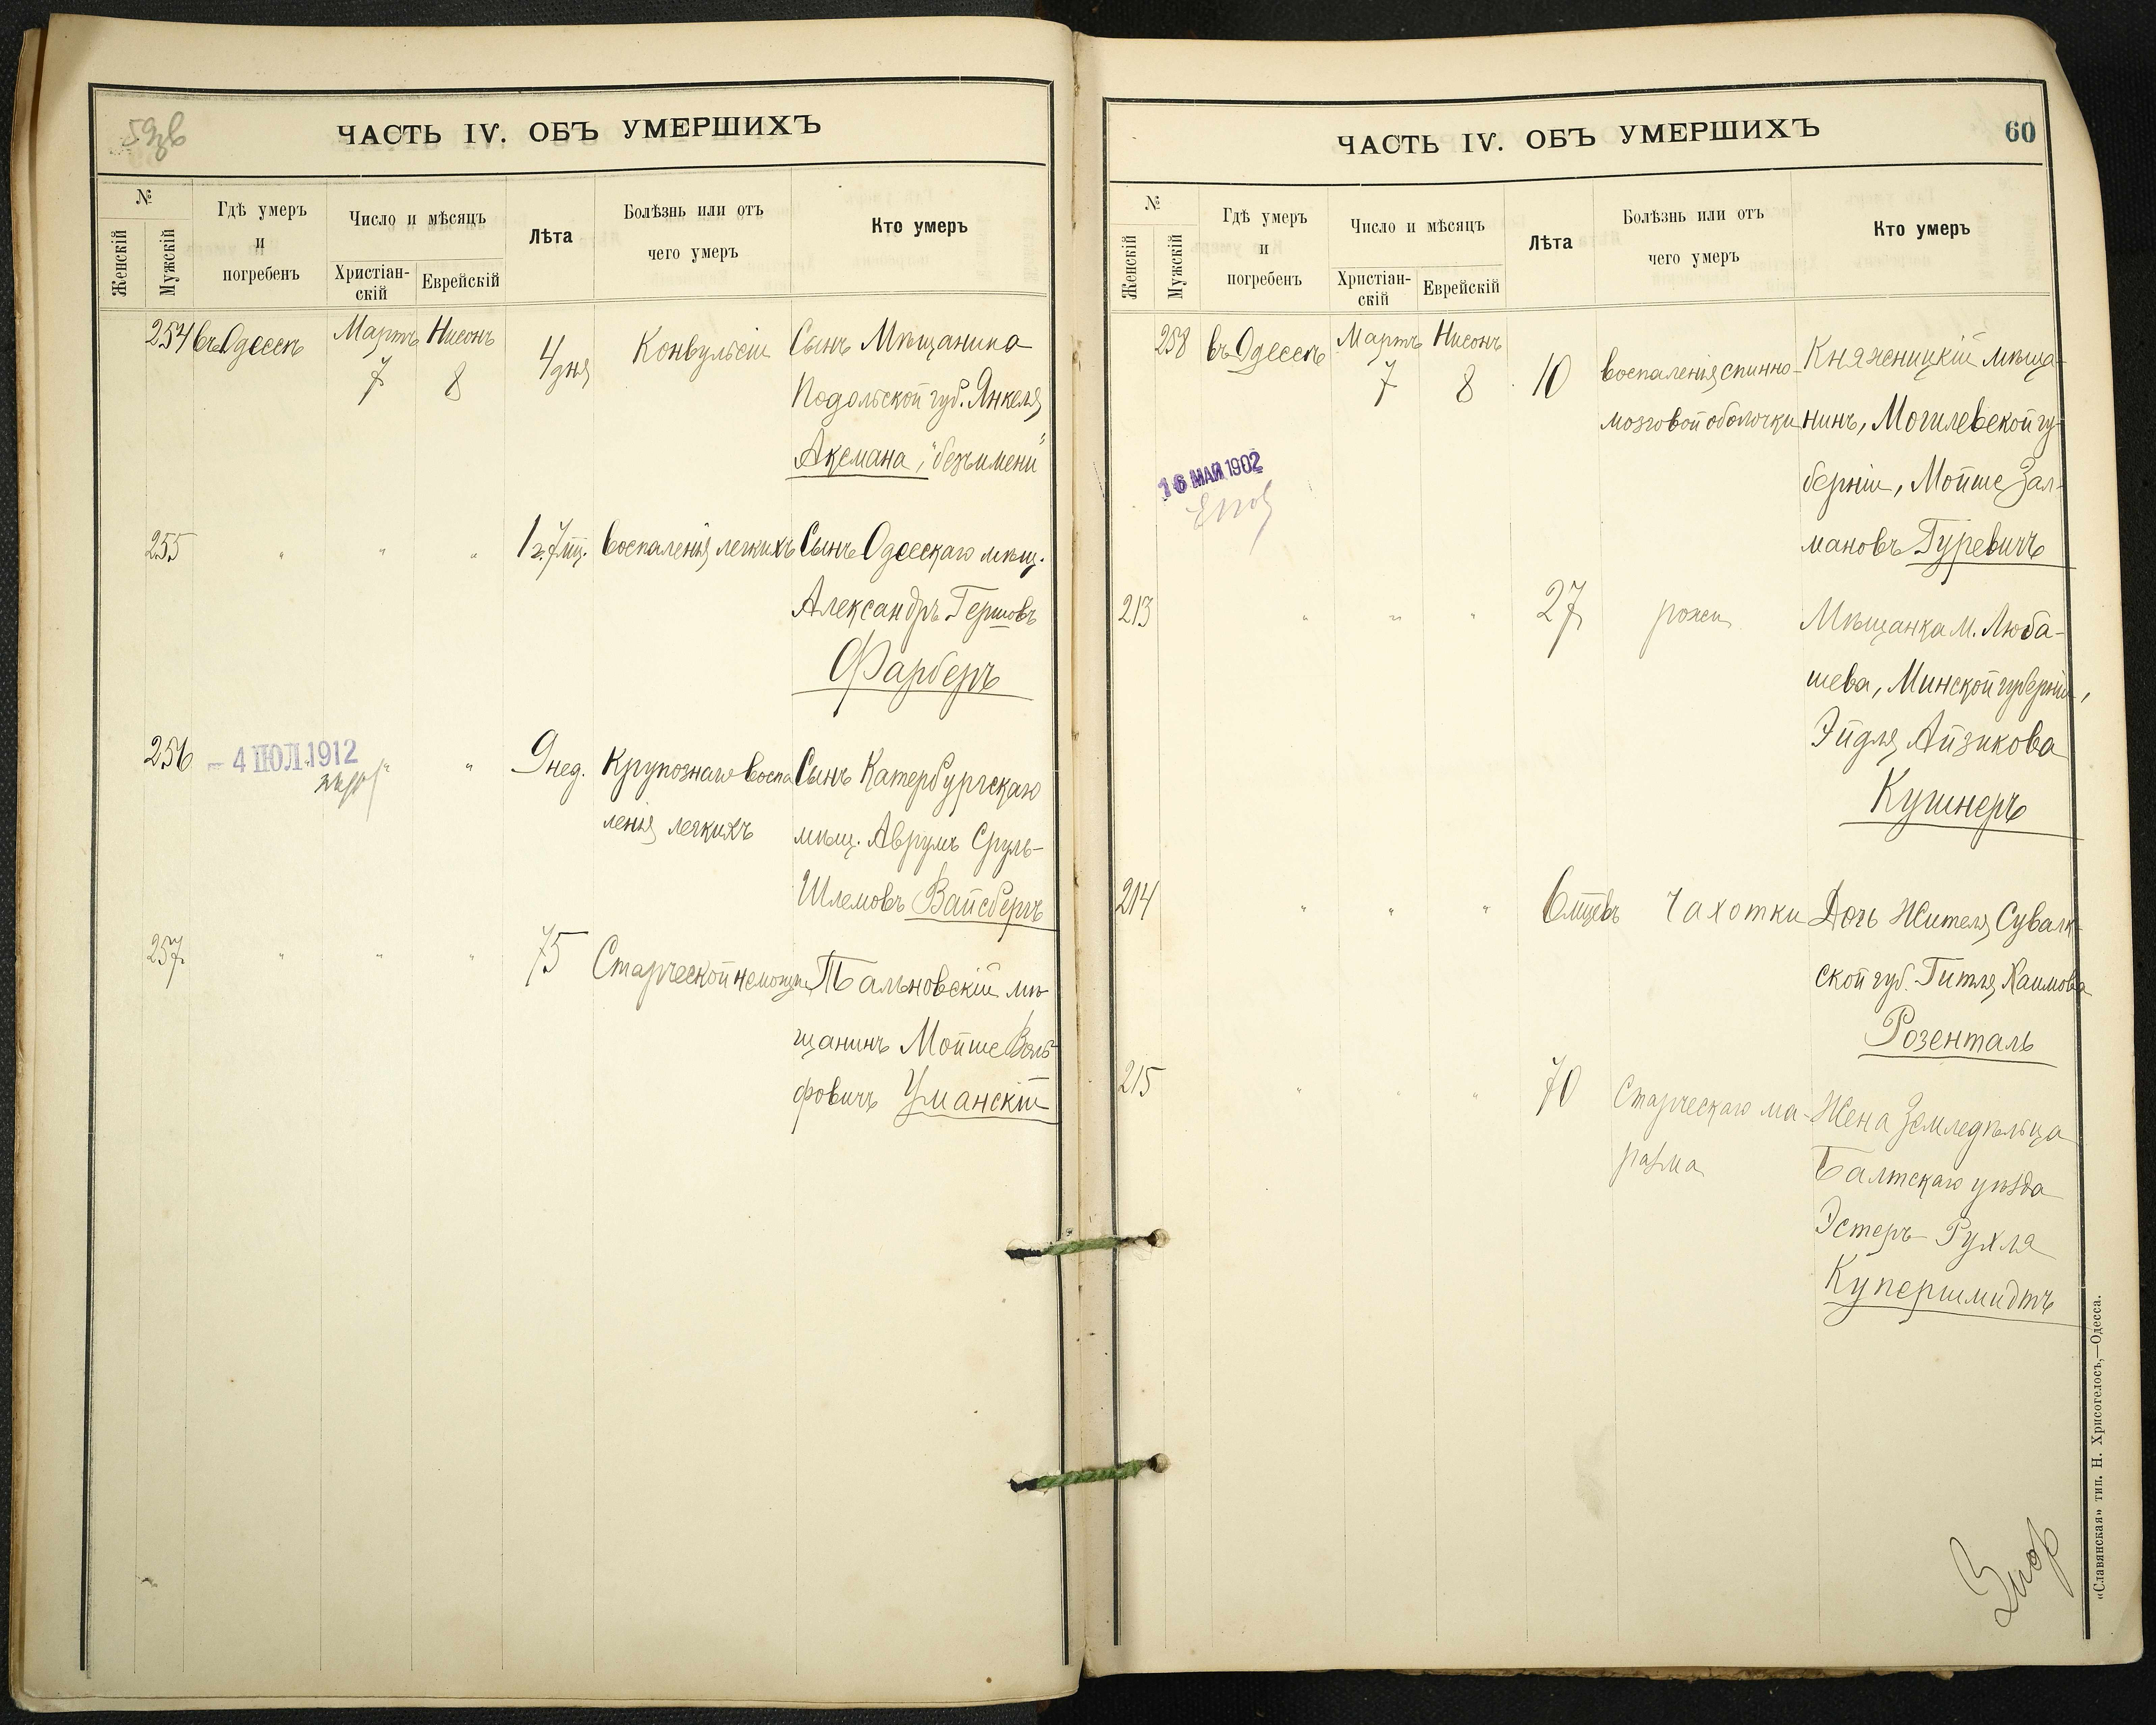 ЧАСТЬ IV. ОБЪ УМЕРШИХЪ
№
Женскій
Мужскій
Гдѣ умеръ
и
погребенъ
Число и мѣсяцъ
Христіан-
скій
Еврейскій
Лѣта
Болѣзнь или отъ
чего умеръ
Кто умеръ
254 въ Одессѣ Мартъ 7 Нисонъ 8 4 дня Конвульсіи Сынъ Мѣщанина
Подольской губ. Янкеля
Аксмана, "безъ имени"
255 " " " воспаленія легкихъ Сынъ Одесскаго мѣщ.
Александръ Гершовъ
Фарберъ
256 – 4 ІЮЛ. 1912 " " 9 нед. Крупознаго воспа Сынъ Катербургскаго
ленія легкихъ мѣщ. Аврумъ Сруль-
Шлемовъ Вайсбергъ
257 " " " 75 Старческой немощи Тальновскій мѣ
щанинъ Мойше Воль-
фовичъ Уманскій
ЧАСТЬ IV. ОБЪ УМЕРШИХЪ
60
№
Женскій
Мужскій
Гдѣ умеръ
и
погребенъ
Число и мѣсяцъ
Христіан-
скій
Еврейскій
Лѣта
Болѣзнь или отъ
чего умеръ
Кто умеръ
258 въ Одессѣ Мартъ 7 Нисонъ 8 10 воспаленія спинно- Княжницкій мѣща-
мозговой оболочки нинъ, Могилевской гу-
16 МАЯ 1902
берніи, Мойше Зал-
мановъ Гуревичъ
213 " " " 27 рожи Мѣщанка м. Люба-
шева, Минской губерніи,
Эйдля Айзикова
Кушнеръ
214 " " " 6 мцевъ Чахотки Дочь Жителя Сувалк-
ской губ. Гитля Хаимова
Розенталь
215 " " " 70 Старческаго ма- Жена Земледѣльца
разма Балтскаго уѣзда
Эстеръ-Рухля
Купершмидтъ
«Славянская» тип. Н. Хрисогелосъ,—Одесса.